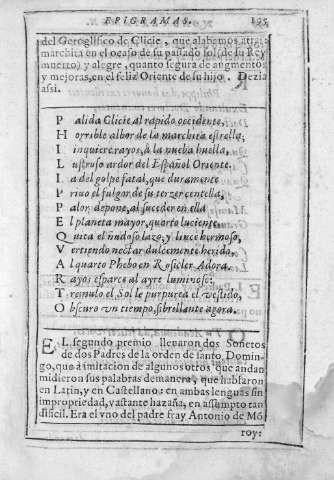 EPIGRAMAS. 195
del Geroglifico de Clicie, que alabemos atras:
marchita en el ocaso de su passado sol (de su Rey
muerto) y alegre, quanto segura de augmentos
y mejoras, en el feliz Oriente de su hijo. Dezia
assi.
P alida Clicie al rapido occidente,
H orrible albor de la marchita estrella;
I inquiere rayos, à la nueba huella,
L ustroso ardor del Español Oriente.
I a del golpe fatal, que duramente
P riuo el fulgor de su terzer centella,
P alor depone, al suceder en ella
E l planeta mayor, quarto luciente.
Q uita el ñudoso lazo, y luce hermoso,
V ertiendo nectar dulcemente herido,
A l quarto Phebo en Rosicler Adora.
R ayos esparce al ayre luminoso;
T remulo el Sol le purpurea el vestido,
O bscuro vn tiempo, si brillante agora.
EL segundo premio lleuaron dos Sonetos
de dos Padres de la orden de santo Domin-
go, que à imitacion de algunos otros que andan
midieron sus palabras de manera, que hablaron
en Latin, y en Castellano: en ambas lenguas sin
impropriedad, y astante hazaña, en assumpto tan
dificil. Era el vno del padre fray Antonio de Mō
roy: